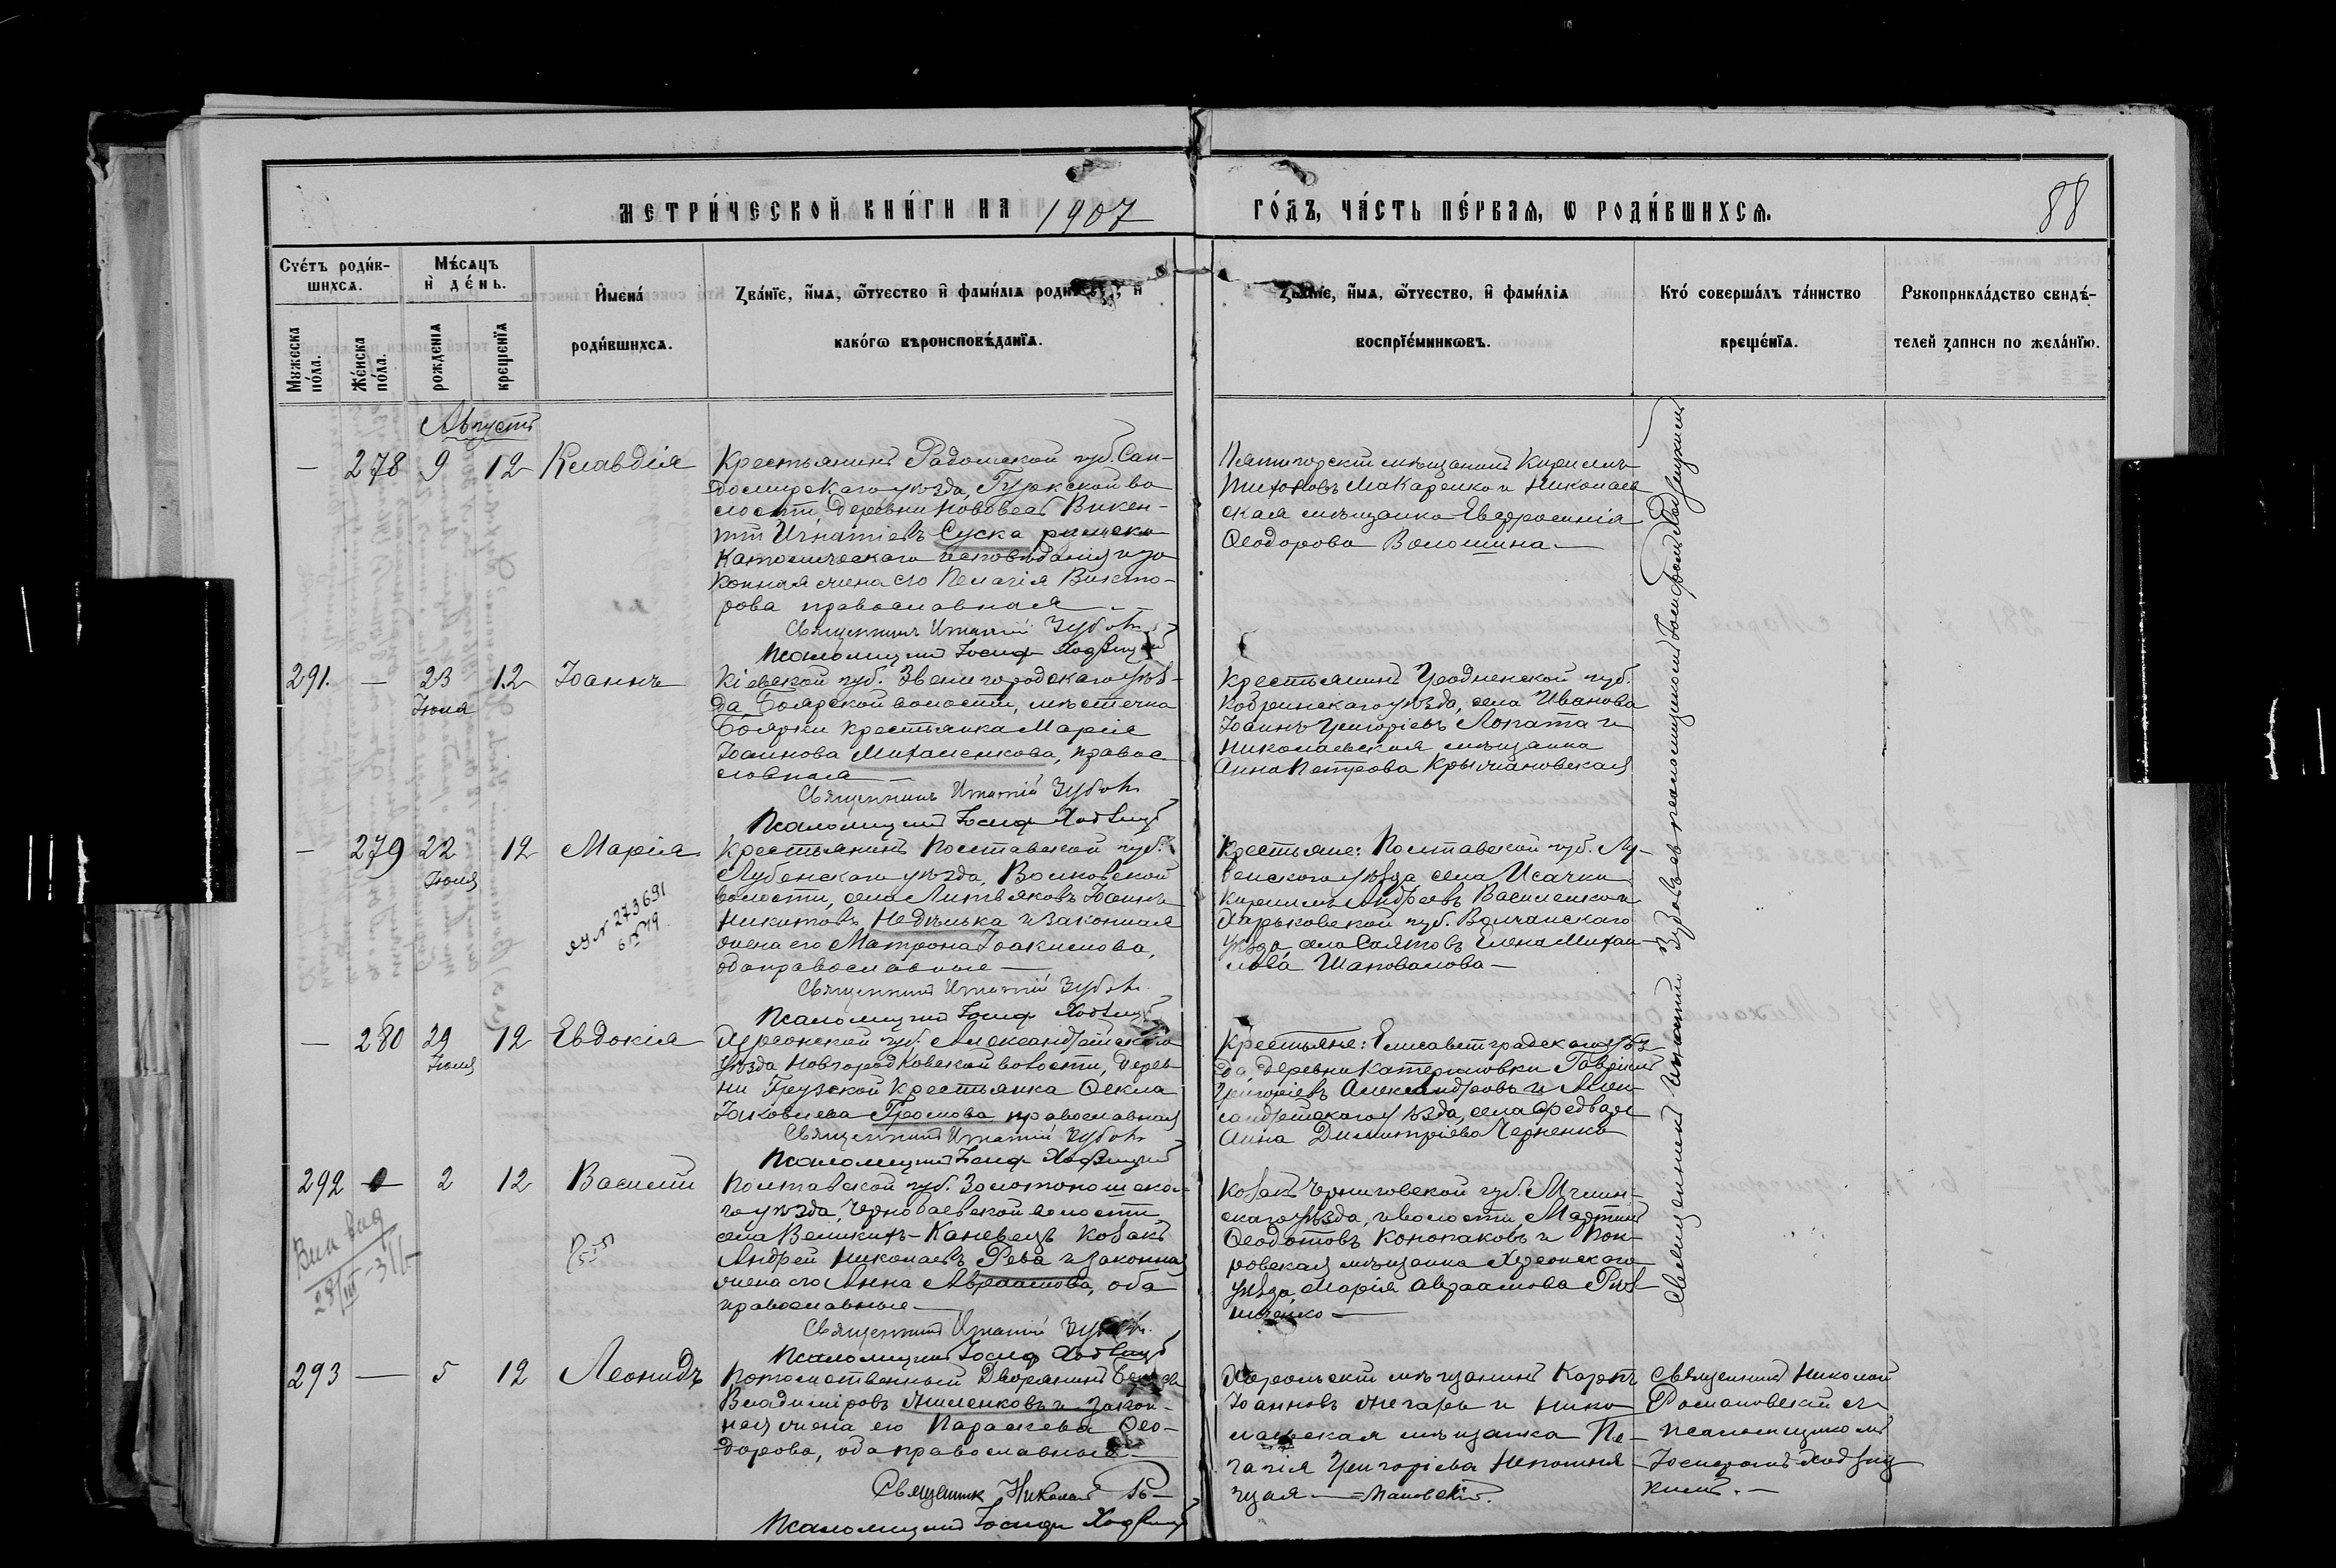 МЕТРИ́ЧЕСКОЙ КНИ́ГИ НА 1907
ГО́ДЪ, ЧА́СТЬ ПЕ́РВАЯ, Ѡ РОДИ́ВШИХСЯ.
88
Сче́тъ роди́в-
шихся.
Мѣ́сяцъ
и де́нь.
Мꙋжеска
по́ла.
Же́нска
по́ла.
рожденїя
крещенїя
И҆мена́
роди́вшихся.
Зва́нїе, и҆́мя, ѻ҆́тчество и҆ фами́лїя
како́гѡ вѣроисповѣ́данїя.
и҆́мя, ѻ҆́тчество, и҆ фами́лїя
воспрїе́мникѡвъ.
Кто́ соверша́лъ та́инство
креще́нїя.
Рꙋкоприкла́дство свидѣ́-
телей записи по жела́нїю.
Августъ
— 278 9 12 Клавдія
Крестьянинъ Радомской губ. Сан-
домирскаго уѣзда, во
лости деревни Викен-
тій Игнатіевъ Суска римско
католическаго исповѣданія и за
конная жена его Пелагія Викто-
рова православная
Священникъ Игнатій
Псаломщикъ Іосифъ
Пятигорскій мѣщанинъ Кириллъ
Тихоновъ Макаренко и Николаев
ская мѣщанка Евфросинія
Ѳеодорова Волошина —
291. — 23 12 Іоаннъ
Іюля
Кіевской губ. Звенигородскаго уѣз-
да Боярской волости, мѣстечка
Боярки крестьянка Марія
Іоаннова Михаленкова, правос
славная —
Священникъ Игнатій
Псаломщикъ Іосифъ
Крестьянинъ Гродненской губ.
Кобринскаго уѣзда, села Иванова
Іоаннъ Григоріевъ Лопата и
Николаевская мѣщанка
Анна Петрова Крыжановская
— 279 22 12 Марія
Іюля
ЯУ № 273691
Крестьянинъ Полтавской губ.
Лубенскаго уѣзда, Волковской
волости, села Литвяковъ Іоаннъ
Никитовъ Недѣлька и законная
жена его Матрона Іоакимова,
оба православные —
Священникъ Игнатій
Псаломщикъ Іосифъ
Крестьяне: Полтавской губ. Лу-
бенскаго уѣзда села Исачки
Кириллъ Андреевъ Василенко и
Харьковской губ. Волчанскаго
уѣзда, села Елена Михаи-
лова Шаповалова —
— 280 29 12 Евдокія
Іюля
Херсонской губ. Александрійскаго
уѣзда Новгородковской волости, дерев-
ни Грузской крестьянка Ѳекла
Іаковлева Громова православная
Священникъ Игнатій
Псаломщикъ Іосифъ
Крестьяне: Елисаветградскаго уѣз
да, деревни Катериновки Гавріилъ
Григоріевъ Александровъ и Алек
сандрійскаго уѣзда, села
Анна Димитріева Черненко
292 — 2 12 Василій
Полтавской губ. Золотоношска-
го уѣзда, Чернобаевской волости
села Великихъ-Каневецъ козакъ
Андрей Николаевъ Рева и законная
жена его Анна Авраамова, оба
православные —
Священникъ Игнатій
Псаломщикъ Іосифъ
Козакъ Черниговской губ. Мглин-
скаго уѣзда, и волости, Мартинъ
Ѳеодотовъ Конопаковъ и Пок-
ровская мѣщанка Херсонскаго
уѣзда Марія Авраамова
Священникъ Игнатій Зубовъ съ псаломщикомъ Іосифомъ Ходзицкимъ
293 — 5 12 Леонидъ
Потомственный Дворянинъ
Владиміровъ и закон-
ная жена его Параскева Ѳео-
дорова, оба православные —
Священник Николай Ро-
Псаломщикъ Іосифъ
Хорольскій мѣщанинъ Карпъ
Іоанновъ и Нико
лаевская мѣщанка Пе-
лагія Григоріева
щая — = мановскій.
Священникъ Николай
Романовскій съ
псаломщикомъ
Іосифомъ Ходзиц
кимъ. —